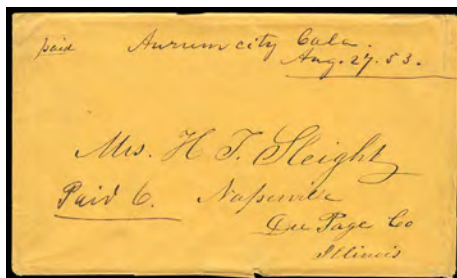 paid Aurum city Cala.
Aug. 27. 53.
Mrs. H T. Sleight
Paid 6. Naperville
Du Page Co
Illinois